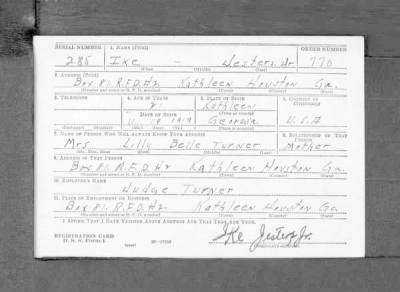 SERIAL NUMBER 1. NAME (Print) ORDER NUMBER
285 Ike - Jesters Jr 770
(First) (Middle) (Last)
2. ADDRESS (Print)
Box 81. R.F.D.#2 Kathleen Houston Ga.
3. TELEPHONE 4. AGE IN YEARS 5. PLACE OF BIRTH 6. COUNTRY OF CITIZENSHIP
21 Kathleen
DATE OF BIRTH
11 18 1919 Georgia U.S.A
7. NAME OF PERSON WHO WILL ALWAYS KNOW YOUR ADDRESS 8. RELATIONSHIP OF THAT PERSON
Mrs Lilly Belle Turner Mother
9. ADDRESS OF THAT PERSON
Box 81. R.F.D.#2 Kathleen Houston Ga.
10. EMPLOYER'S NAME
Judge Turner
11. PLACE OF EMPLOYMENT OR BUSINESS
Box 81. R.F.D.#2 Kathleen Houston Ga.
I AFFIRM THAT I HAVE VERIFIED ABOVE ANSWERS AND THAT THEY ARE TRUE.
REGISTRATION CARD
D. S. S. Form 1 Ike Jesters Jr.